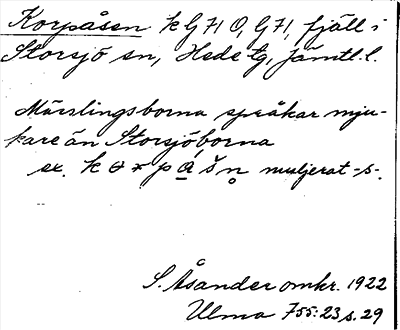 Korpåsen k G 71 O, G 71, fjäll i
Storsjö sn, Hede tg, Jämtl. l.
Mörslingsborna språkar mju-
kare än Storsjöborna
ex. k p š n muljerat -s-.
S. Åsander omkr. 1922
Ulma 755:23 s. 29